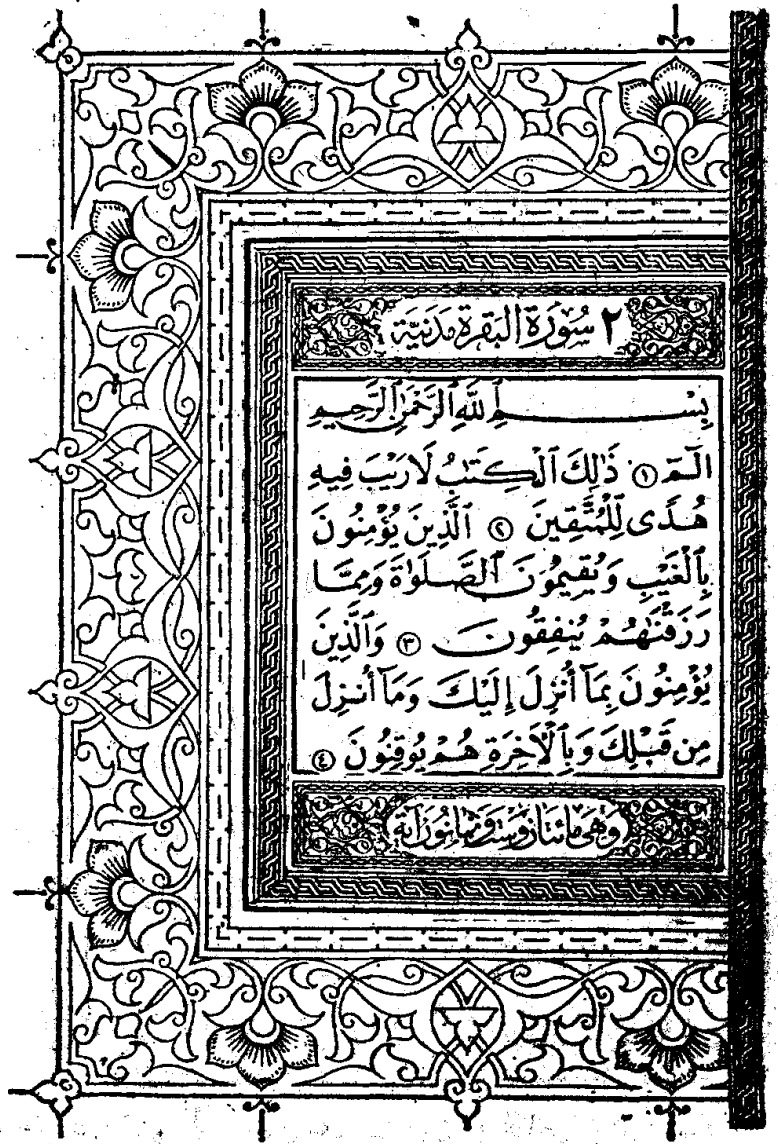 ٢ سُورَةُ الْبَقَرَةِ مَدَنِيَّة
بِسْمِ ٱللَّهِ ٱلرَّحْمَٰنِ ٱلرَّحِيمِ
الٓمٓ ١ ذَٰلِكَ ٱلْكِتَٰبُ لَا رَيْبَ فِيهِ
هُدًى لِّلْمُتَّقِينَ ٢ ٱلَّذِينَ يُؤْمِنُونَ
بِٱلْغَيْبِ وَيُقِيمُونَ ٱلصَّلَوٰةَ وَمِمَّا
رَزَقْنَٰهُمْ يُنفِقُونَ ٣ وَٱلَّذِينَ
يُؤْمِنُونَ بِمَآ أُنزِلَ إِلَيْكَ وَمَآ أُنزِلَ
مِن قَبْلِكَ وَبِٱلْأَخِرَةِ هُمْ يُوقِنُونَ ٤
وَهِيَ مائتان وست وثمانون آية